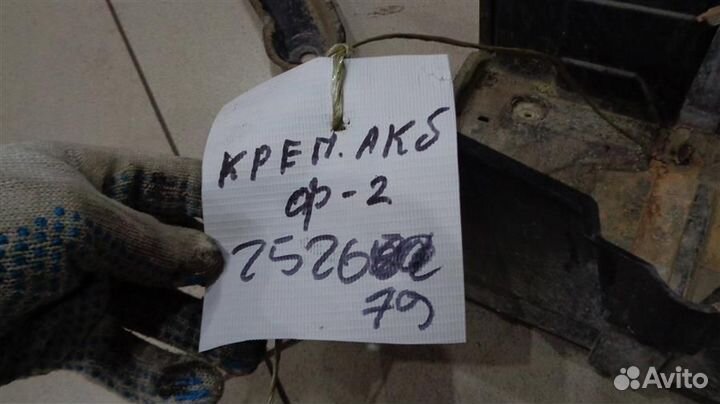 КРЕП. АКБ
ф-2
2526
79
Avito